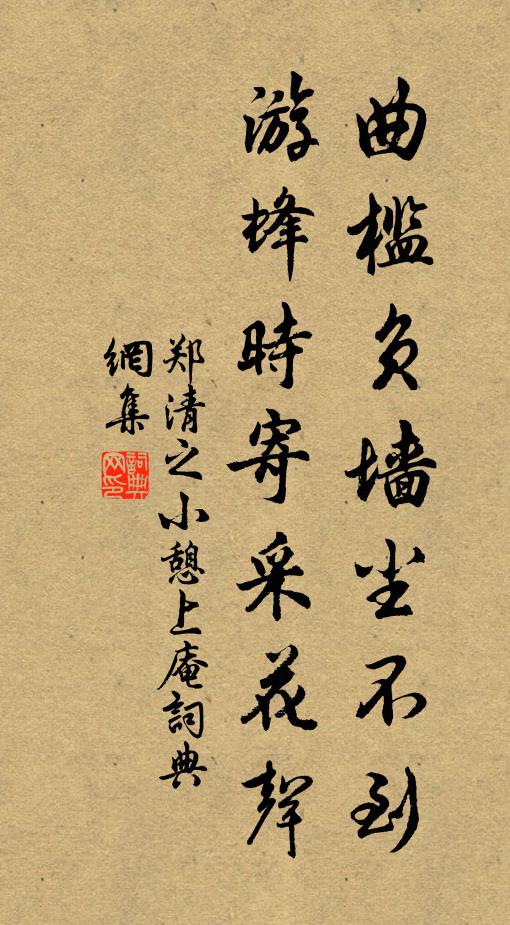 曲槛负墙尘不到
游蜂時寄采花聲
郑清之小憩上庵詞典
網集
詞典网印